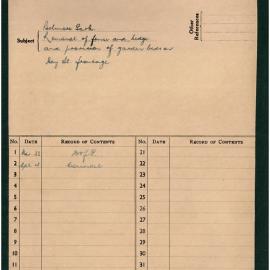 Other
References
Belmore Park
Subject
Removal of fence and hedge
and provision of garden beds on
Hay St frontage
No. DATE RECORD OF CONTENTS No. DATE RECORD OF CONTENTS
1 21
2 22
3 23
4 24
5 25
6 26
7 27
8 28
9 29
10 30
11 31